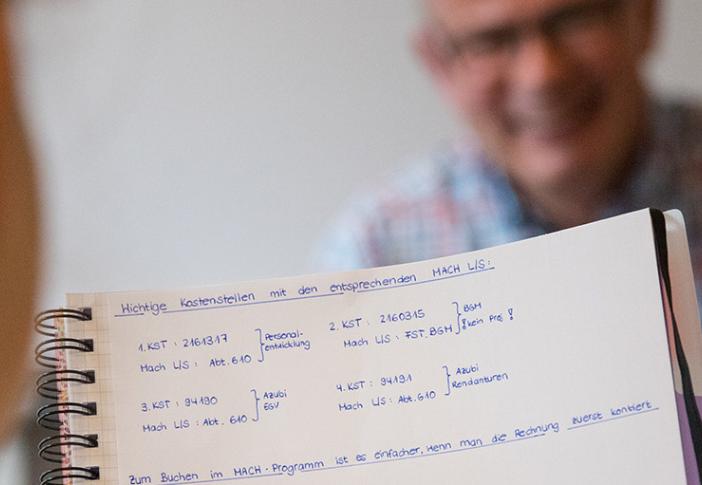 Wichtige Kostenstellen mit den entsprechenden MACH L/S:
1. KST : 2161317 Personal-
Mach L/S : Abt. 610 entwicklung
2. KST : 2160315 BGM
Mach L/S : FST. BGM ! kein Proj !
3. KST : 94190 Azubi
Mach L/S : Abt. 610 EGV
4. KST : 94191 Azubi
Mach L/S : Abt. 610 Rendanturen
Zum Buchen im MACH-Programm ist es einfacher, wenn man die Rechnung zuerst kontiert